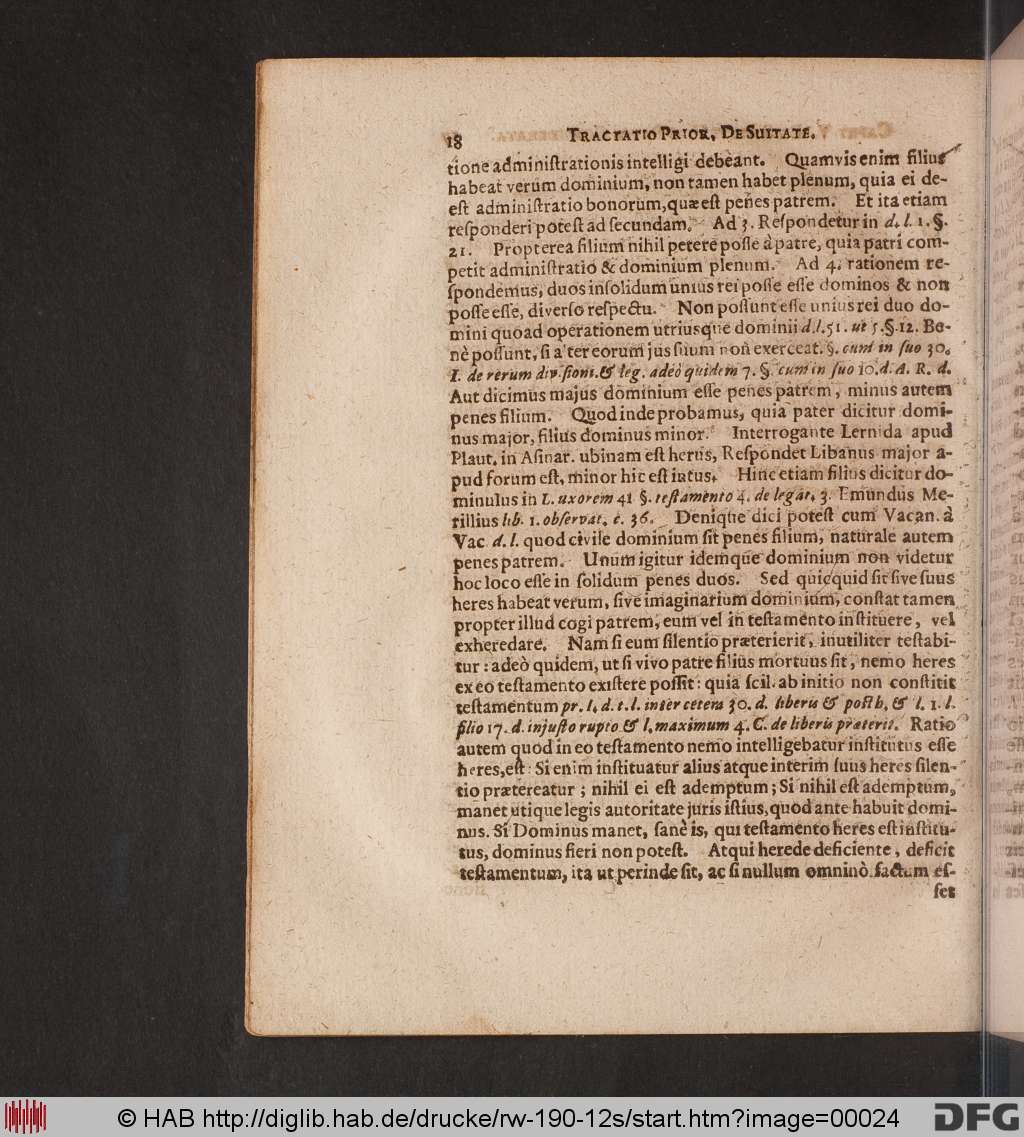 18 TRACTATIO PRIOR, DE SUITATE.
tione adminiſtrationis intelligi debeant. Quamvis enim filius
habeat verum dominium, non tamen habet plenum, quia ei de-
eſt adminiſtratio bonorum, quæ eſt penes patrem. Et ita etiam
reſponderi poteſt ad ſecundam. Ad 3. Reſpondetur in d. l. 1. §.
21. Propterea filium nihil petere poſſe à patre, quia patri com-
petit adminiſtratio & dominium plenum. Ad 4. rationem re-
ſpondemus, duos inſolidum unius rei poſſe eſſe dominos & non
poſſe eſſe, diverſo reſpectu. Non poſſunt eſſe unius rei duo do-
mini quoad operationem utriusque dominii d. l. 51. ut 5. §. 12. Be-
nè poſſunt, ſi alter eorum jus ſuum non exerceat. §. cum in ſuo 30.
I. de rerum diviſioni. & leg. adeò quidem 7. §. cum in ſuo 10. d. A. R. d.
Aut dicimus majus dominium eſſe penes patrem, minus autem
penes filium. Quod inde probamus, quia pater dicitur domi-
nus major, filius dominus minor. Interrogante Lernida apud
Plaut. in Aſinar. ubinam eſt herus, Reſpondet Libanus major a-
pud forum eſt, minor hic eſt intus. Hinc etiam filius dicitur do-
minulus in L. uxorem 41 §. teſtamento 4. de legat. 3. Emundus Me-
rillius lib. 1. obſervat. c. 36. Denique dici poteſt cum Vacan. à
Vac d. l. quod civile dominium ſit penes filium, naturale autem
penes patrem. Unum igitur idemque dominium non videtur
hoc loco eſſe in ſolidum penes duos. Sed quicquid ſit ſive ſuus
heres habeat verum, ſive imaginarium dominium, conſtat tamen
propter illud cogi patrem, eum vel in teſtamento inſtituere, vel
exheredare. Nam ſi eum ſilentio præterierit, inutiliter teſtabi-
tur: adeò quidem, ut ſi vivo patre filius mortuus ſit, nemo heres
ex eo teſtamento exiſtere poſſit: quia ſcil. ab initio non conſtitit
teſtamentum pr. I. d. t. l. inter cetera 30. d. liberis & poſth. & l. 1. l.
filio 17. d. injuſto rupto & l. maximum 4. C. de liberis præterit. Ratio
autem quod in eo teſtamento nemo intelligebatur inſtitutus eſſe
heres, eſt: Si enim inſtituatur alius atque interim ſuus heres ſilen-
tio prætereatur; nihil ei eſt ademptum; Si nihil eſt ademptum,
manet utique legis autoritate juris iſtius, quod ante habuit domi-
nus. Si Dominus manet, ſanè is, qui teſtamento heres eſt inſtitu-
tus, dominus fieri non poteſt. Atqui herede deficiente, deficit
teſtamentum, ita ut perinde ſit, ac ſi nullum omninò factum eſ-
ſet
© HAB http://diglib.hab.de/drucke/rw-190-12s/start.htm?image=00024
DFG